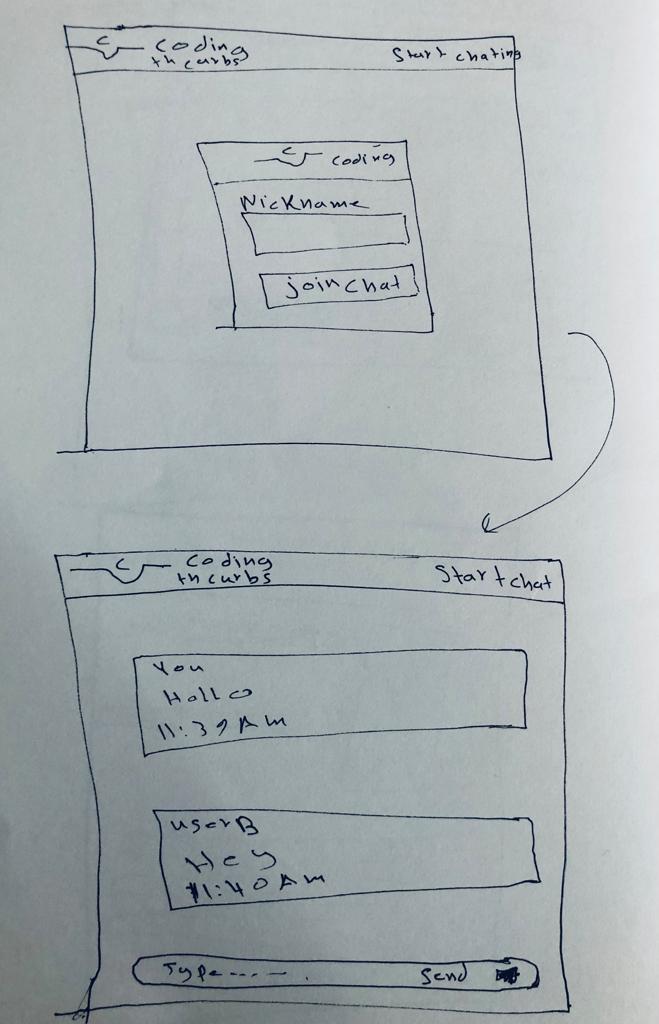 C coding
th curbs
Start chating
C coding
Nickname
join chat
C coding
th curbs
Start chat
You
Hallo
11:39 AM
user B
Hey
11:40 AM
Type.... - .
Send